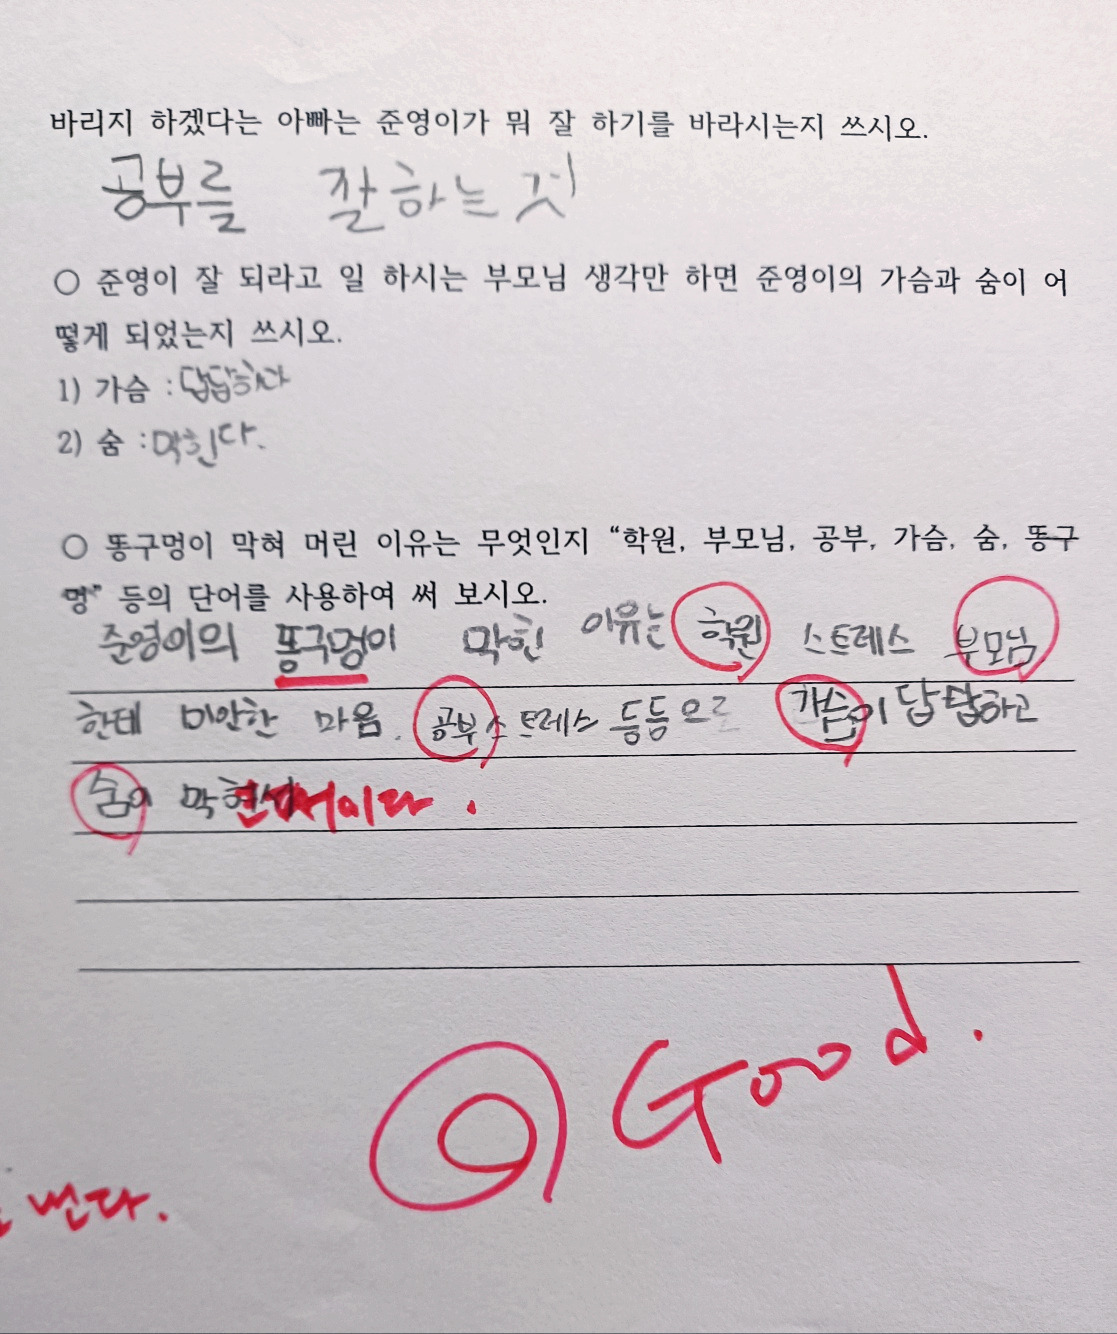 바리지 하겠다는 아빠는 준영이가 뭐 잘 하기를 바라시는지 쓰시오.
공부를 잘하는 것
○ 준영이 잘 되라고 일 하시는 부모님 생각만 하면 준영이의 가슴과 숨이 어
떻게 되었는지 쓰시오.
1) 가슴 : 답답하다
2) 숨 : 막힌다.
○ 똥구멍이 막혀 머린 이유는 무엇인지 “학원, 부모님, 공부, 가슴, 숨, 똥구
멍” 등의 단어를 사용하여 써 보시오.
준영이의 똥구멍이 막힌 이유는 학원 스트레스 부모님
한테 미안한 마음. 공부 스트레스 등등으로 가슴이 답답하고
숨이 막혀서이다.
Good.
번다.